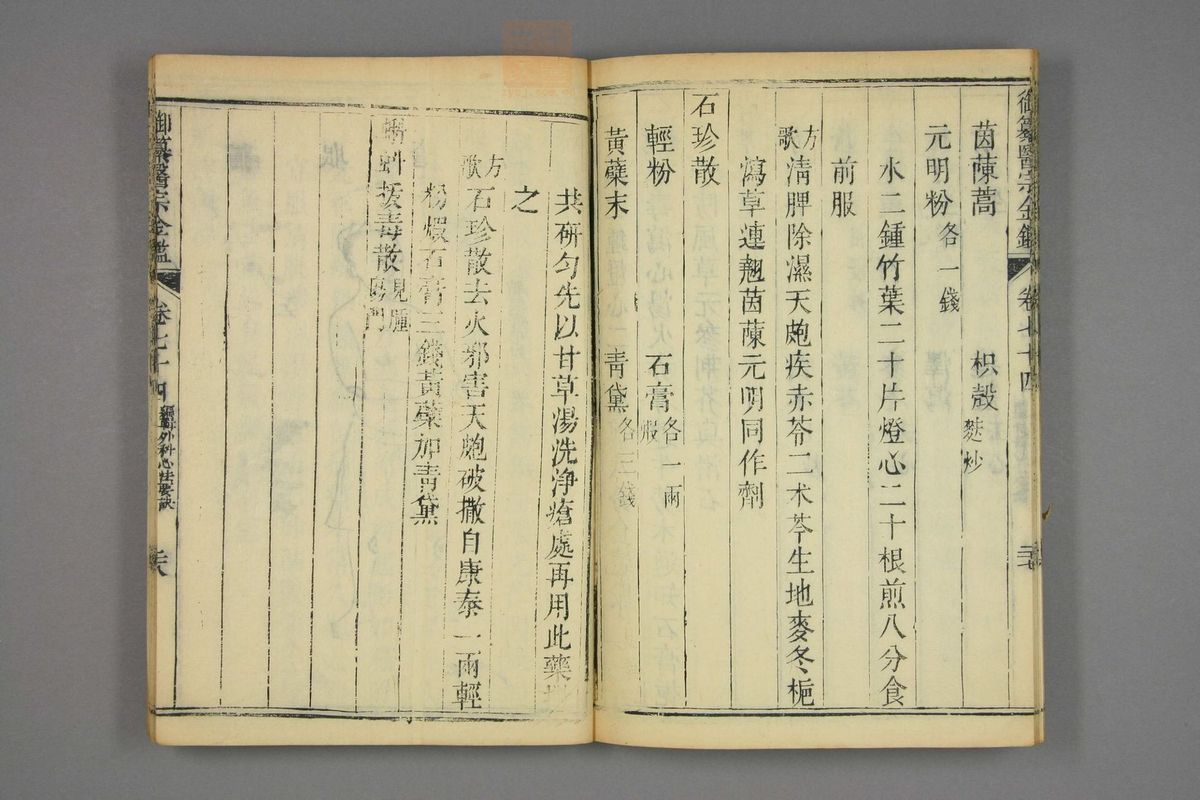 御纂醫宗金鑑 卷七十四
茵蔯蒿 枳殼麩炒
元明粉各一錢
水二鍾竹葉二十片燈心二十根煎八分食
前服
方歌 清脾除濕天皰疾赤苓二术芩生地麥冬梔
瀉草連翹茵蔯元明同作劑
石珍散
輕粉 石膏煅各一兩
黃蘗末 青黛各三錢
共研勻先以甘草湯洗淨瘡處再用此藥
之
方歌 石珍散去火邪害天皰破撒自康泰一兩輕
粉煆石膏三錢黃蘗加青黛
蚪拔毒散見腫瘍門
御纂醫宗金鑑 卷七十四 編輯外科心法要訣